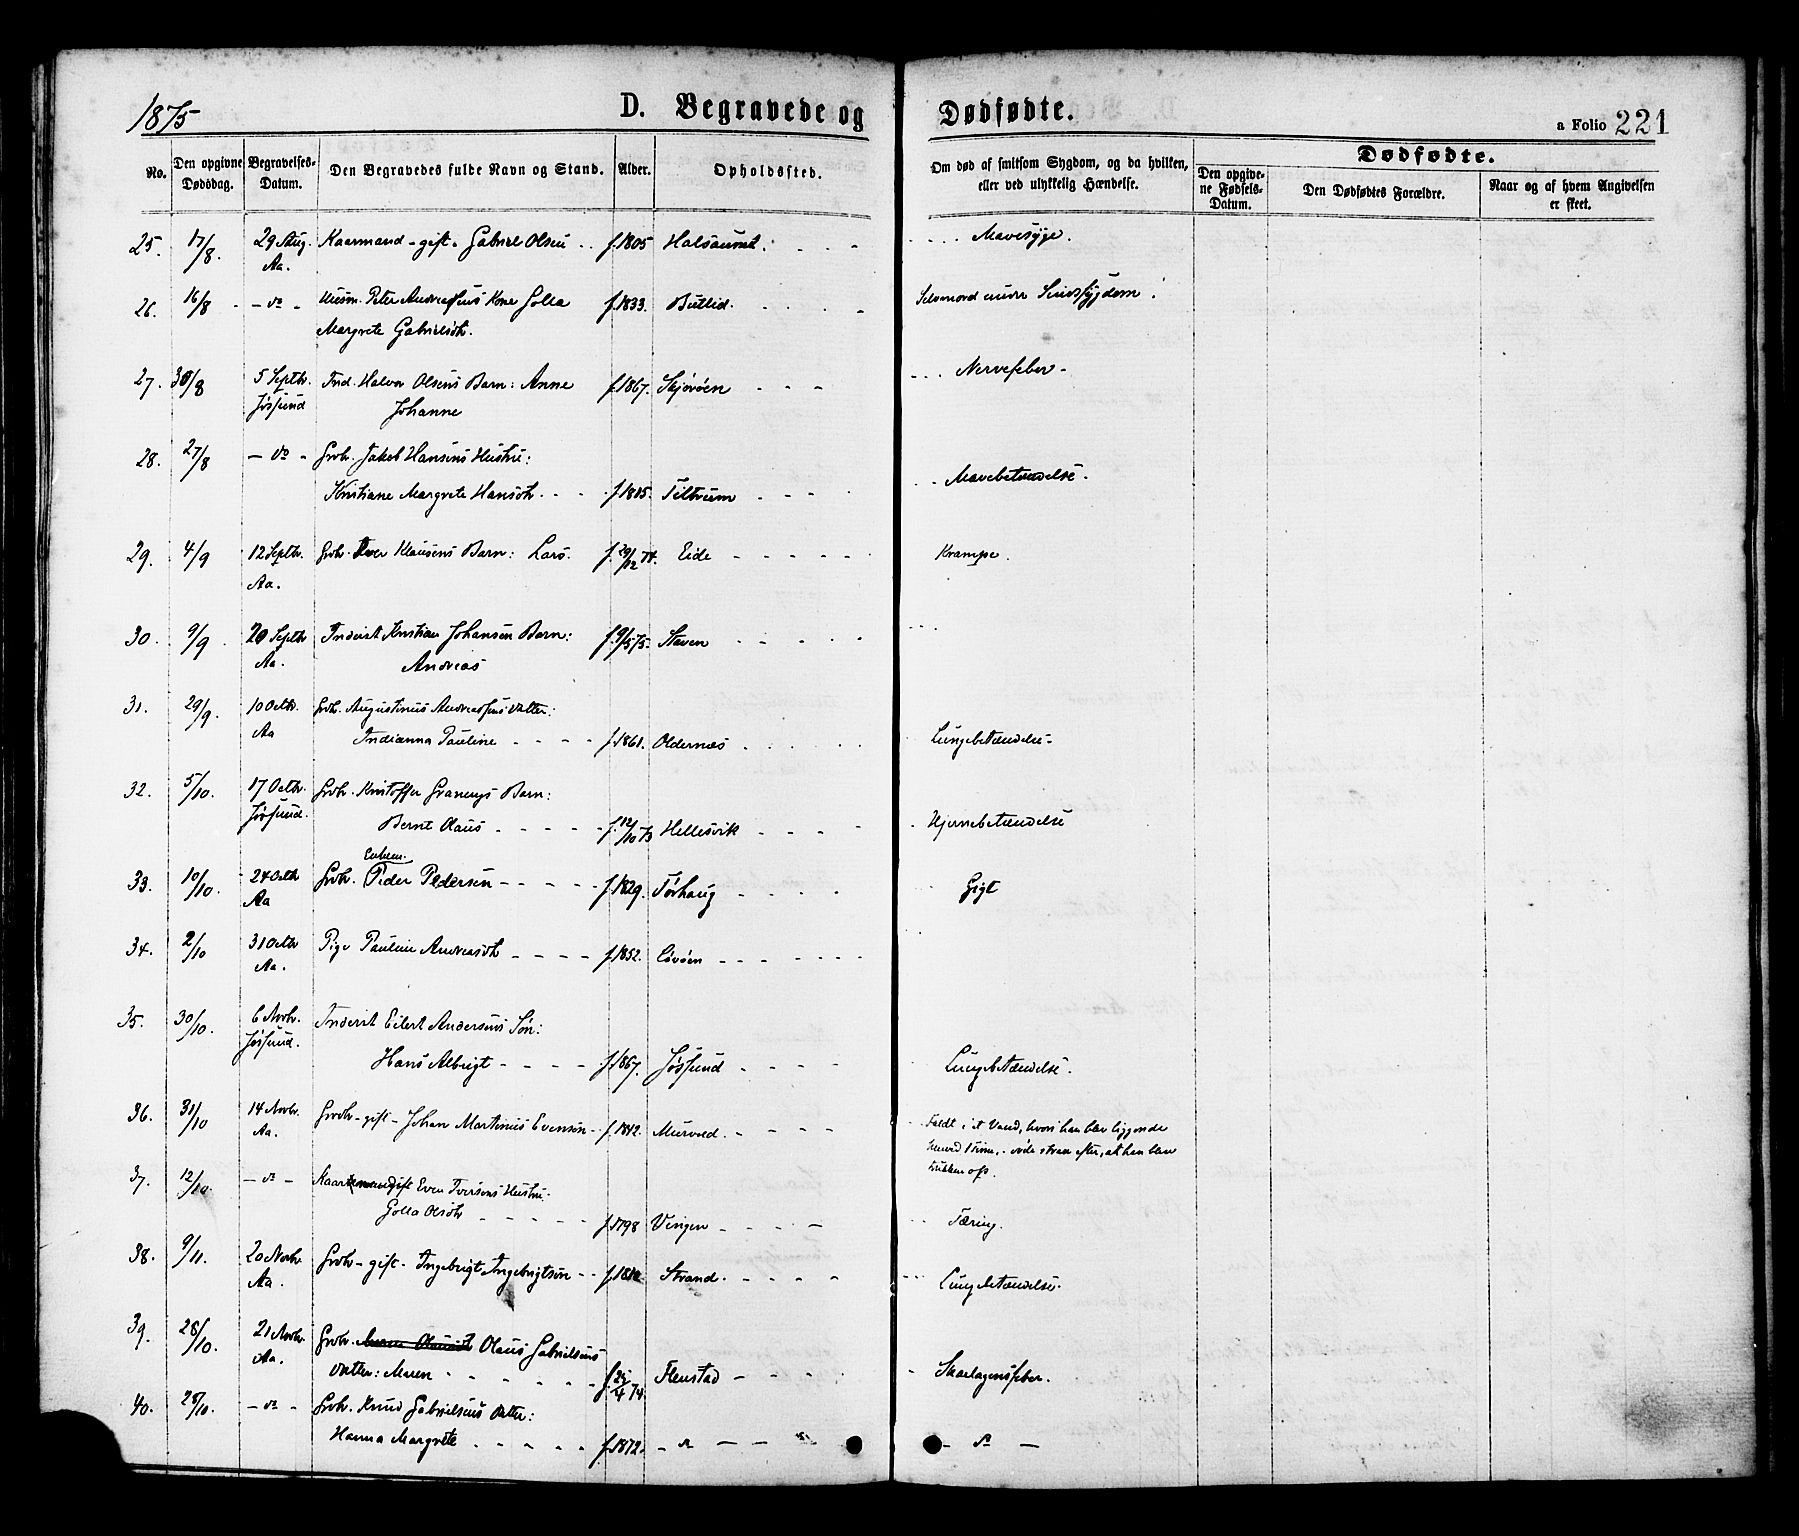 1875
D. Begravede og Dødfødte.
a Folio 221
No.
Den opgivne Dødsdag.
Begravelses-Datum.
Den Begravedes fulde Navn og Stand.
Alder.
Opholdssted.
Om død af smitsom Sygdom, og da hvilken, eller ved ulykkelig Hændelse.
Dødfødte.
Den opgivne Fødsels-Datum.
Den Dødfødtes Forældre.
Naar og af hvem Angivelsen er skeet.
25. 17/8 29 Aug. Kaarmand - gift - Gabriel Olsen f. 1805 Halsaunet. Mavesyge.
Aa.
26. 16/8 - do - Husm. Peter Andreassens Kone Golla f. 1833. Butlid. Selvmord under Sindssygdom.
Margrete Gabrielsdtr.
27. 30/8 5 Septbr. Ind. Halvor Olsens Barn: Anne f. 1867. Skjørøen Nervefeber -
Jøssund Johanne
28. 27/8 - do - Grdbr. Jakob Hansens Hustru:
Kristiane Margrete Hansdtr. f. 1815. Teltrum Mavebetændelse.
29. 4/9 12 Septbr. Grdbr. Iver Klausens Barn: Lars. f. 29/12 74. Eide Krampe.
Aa.
30. 9/9 20 Septbr Inderst Kristian Johansen Barn: f. 9/5 75. Staven
Aa. Andreas
31. 29/9. 10 Octbr. Grdbr. Augustinus Andreassens Datter:
Aa Indianna Pauline f. 1861. Oldernæs Lungebetændelse -
32. 5/10. 17 Octbr. Grdbr. Kristoffer Barn:
Jøssund. Bernt Olaus f. 12/10 73 Hellesvik Hjernebetændelse
Enkem.
33. 10/10. 24 Octbr Grdbr. Peder Pedersen f. 1829. Tørhaug Gigt
Aa
34. 2/10 31 Octbr Pige Pauline Andreasdtr f. 1852. Løvøen
Aa.
35. 30/10. 6 Novbr. Inderst Eilert Andersens Søn:
Jøssund. Hans Albrigt f. 1867. Jøssund Lungebetændelse.
36. 31/10 14 Novbr. Grdbr - gift - Johan Martinus Evensen f. 1842. Murvold. Faldt i et Vand, hvori han blev liggende
Aa. 1 Time, - døde strax efter, at han blev
trukken op.
37. 12/10. - do - Kaarmand gift Even Iversens Hustru.
Golla Olsdtr f. 1798 Vingen Tæring.
38. 9/11. 20 Novbr. Grdbr - gift - Ingebrigt Ingebrigtsen f. 1812 Strand. Lungebetændelse.
Aa.
39. 28/10. 21 Novbr. Grdbr. Olaus Gabrielsens
Aa. Datter: Maren f. 25/4 74 Flenstad Skarlagensfeber.
40. 28/10. - do - Grdbr. Knud Gabrielsens Datter:
Hanna Margrete f. 1872. - do - - do -